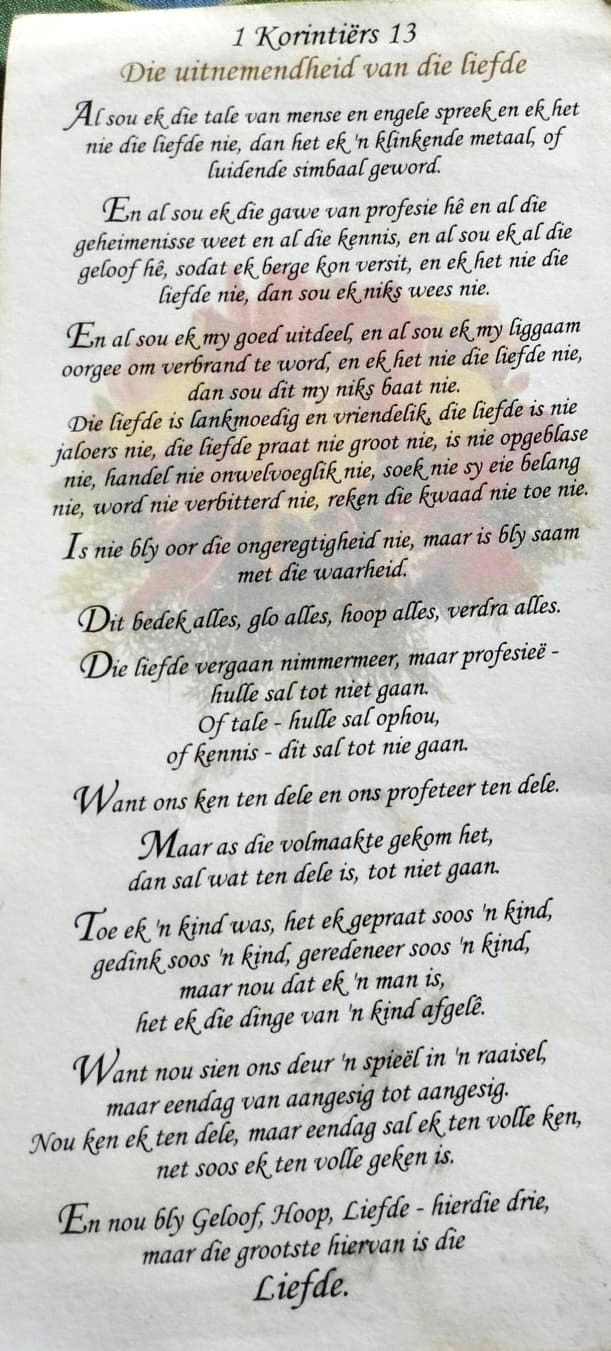 1 Korintiërs 13
Die uitnemendheid van die liefde
Al sou ek die tale van mense en engele spreek en ek het
nie die liefde nie, dan het ek 'n klinkende metaal, of
luidende simbaal geword.
En al sou ek die gawe van profesie hê en al die
geheimenisse weet en al die kennis, en al sou ek al die
geloof hê, sodat ek berge kon versit, en ek het nie die
liefde nie, dan sou ek niks wees nie.
En al sou ek my goed uitdeel, en al sou ek my liggaam
oorgee om verbrand te word, en ek het nie die liefde nie,
dan sou dit my niks baat nie.
Die liefde is lankmoedig en vriendelik, die liefde is nie
jaloers nie, die liefde praat nie groot nie, is nie opgeblase
nie, handel nie onwelvoeglik nie, soek nie sy eie belang
nie, word nie verbitterd nie, reken die kwaad nie toe nie.
Is nie bly oor die ongeregtigheid nie, maar is bly saam
met die waarheid.
Dit bedek alles, glo alles, hoop alles, verdra alles.
Die liefde vergaan nimmermeer, maar profesieë -
hulle sal tot niet gaan.
Of tale - hulle sal ophou,
of kennis - dit sal tot nie gaan.
Want ons ken ten dele en ons profeteer ten dele.
Maar as die volmaakte gekom het,
dan sal wat ten dele is, tot niet gaan.
Toe ek 'n kind was, het ek gepraat soos 'n kind,
gedink soos 'n kind, geredeneer soos 'n kind,
maar nou dat ek 'n man is,
het ek die dinge van 'n kind afgelê.
Want nou sien ons deur 'n spieël in 'n raaisel,
maar eendag van aangesig tot aangesig.
Nou ken ek ten dele, maar eendag sal ek ten volle ken,
net soos ek ten volle geken is.
En nou bly Geloof, Hoop, Liefde - hierdie drie,
maar die grootste hiervan is die
Liefde.